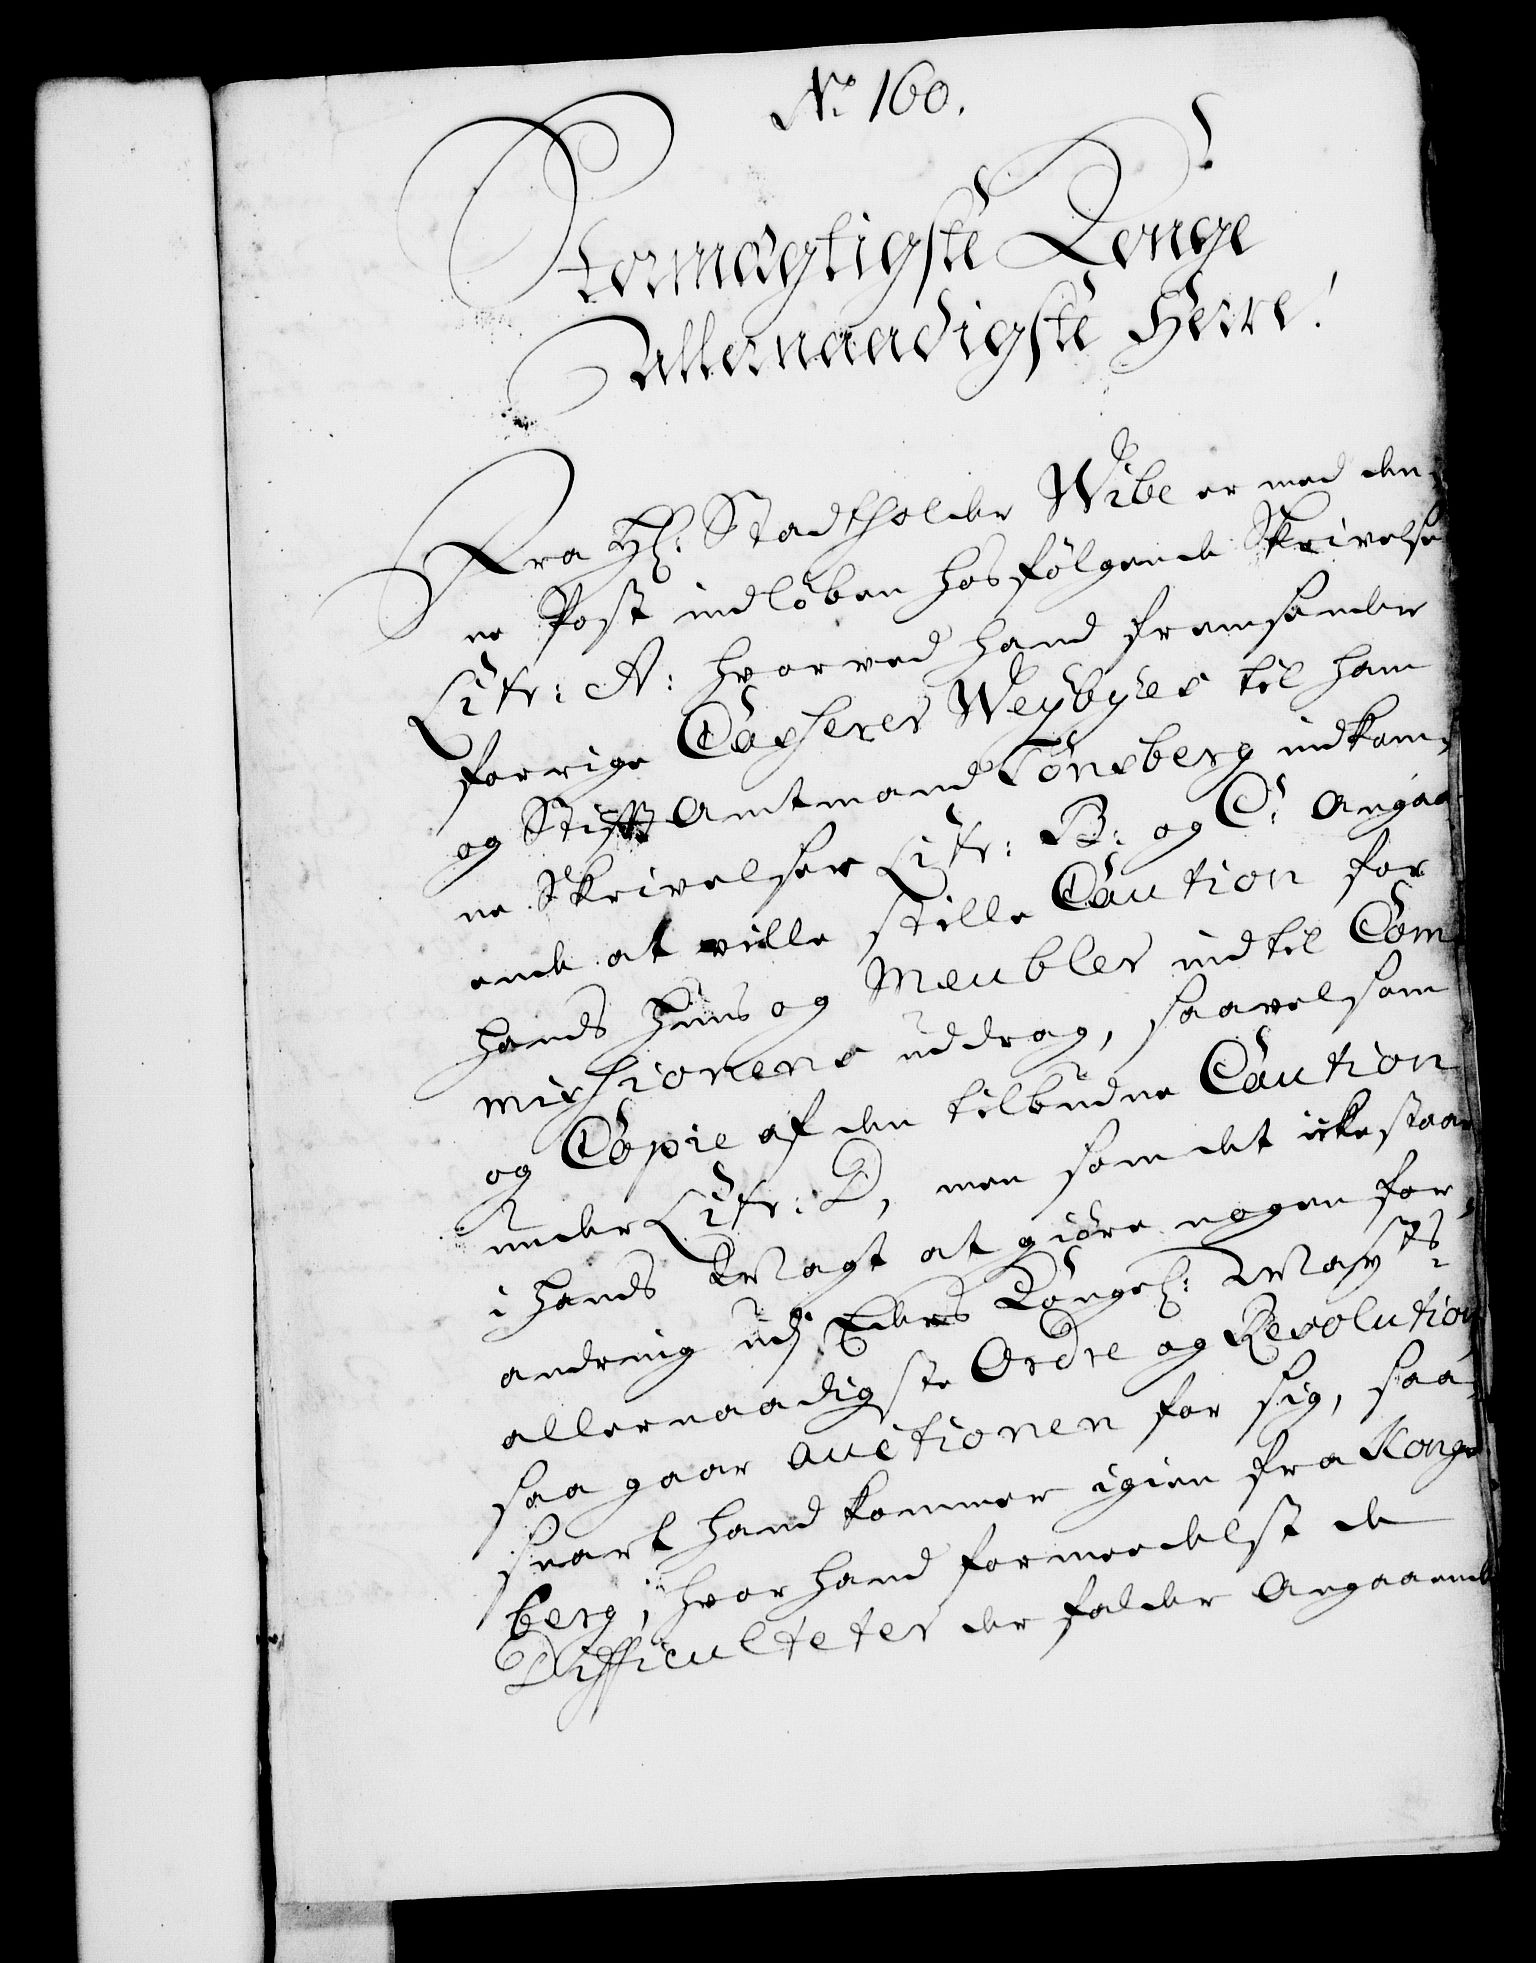 No 160.
Stormægtigste Konge
Allernaadigste Herre!
Fra Hl: Stadtholder Wibe er med den-
ne Post indløben hosfølgende Skrivelse
Litr: A: hvorved hand fremsender
forrige Casserer Weybyes til ham
og Stift Amtmand Tønsberg indkom-
ne Skrivelser Litr: B: og C: angaa
ende at ville stille Caution for
hands Huus og Meubler indtil Com
missionens uddrag, saavelsom
og Copie af den tilbudne Caution
under Litr: D, men som det icke staar
i hands Magt at giøre nogen for-
andring udj Eders Kongel: Maÿts
allernaadigste Ordre og Resolution
saa gaar Auctionen for sig, saa-
snart hand kommer igien fra Kongs
berg, hvor hand formedelst de
Difficulteter der falder Angaaende